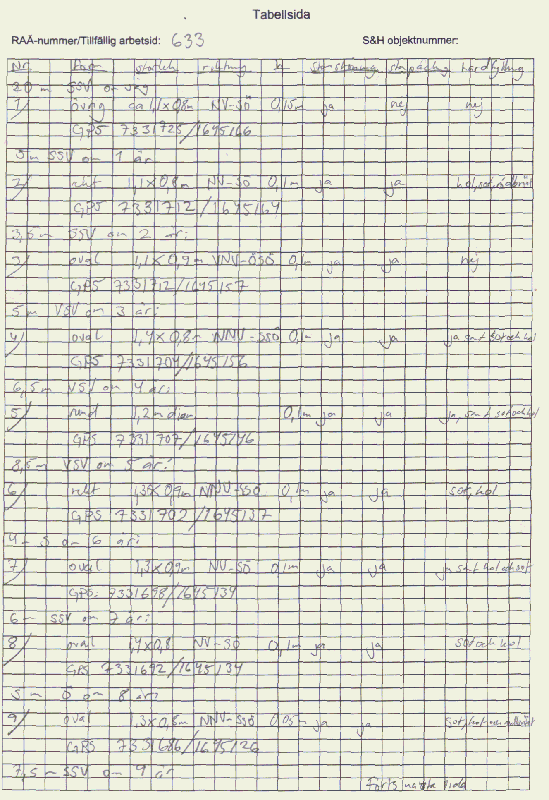 Tabellsida
RAÄ-nummer/Tillfällig arbetsid: 633 S&H objektnummer:
Nr. Form storlek riktning dj stenskoning
20 m SSV om väg
1) övrig ca 1,1x0,8m NV-SÖ 0,15m ja nej nej
GPS 7331725/1645166
3m SSV om 1 är
2) rekt 1,1x0,8m NV-SÖ 0,1m ja ja kol,sot,
GPS 7331712/1645164
3,5m SSV om 2 är:
3) oval 1,1x0,9m VNV-ÖSÖ 0,1m ja ja nej
GPS 7331712/1645157
5m VSV om 3 är:
4) oval 1,4x0,8m NNV-SSÖ 0,1m ja ja ja samt sot och kol
GPS 7331704/1645156
6,5m VSV om 4 är:
5) rund 1,2m diam 0,1m ja ja ja, samt sot och kol
GPS 7331707/1645146
8,5m VSV om 5 är:
6) rekt 1,3x0,9m NNV-SSÖ 0,1m ja ja sot, kol
GPS 7331702/1645137
4m S om 6 är:
7) oval 1,3x0,9m NV-SÖ 0,1m ja ja ja samt kol och sot
GPS: 7331698/1645134
6m SSV om 7 är:
8) oval 1,4x0,8 NV-SÖ 0,1m ja ja sot och kol
GPS 7331692/1645134
5m Ö om 8 är:
9) oval 1,3x0,8m NNV-SSÖ 0,05m ja ja sot, kol och
GPS 7331686/1645126
7,5m SSV om 9 är
Forts nästa sida